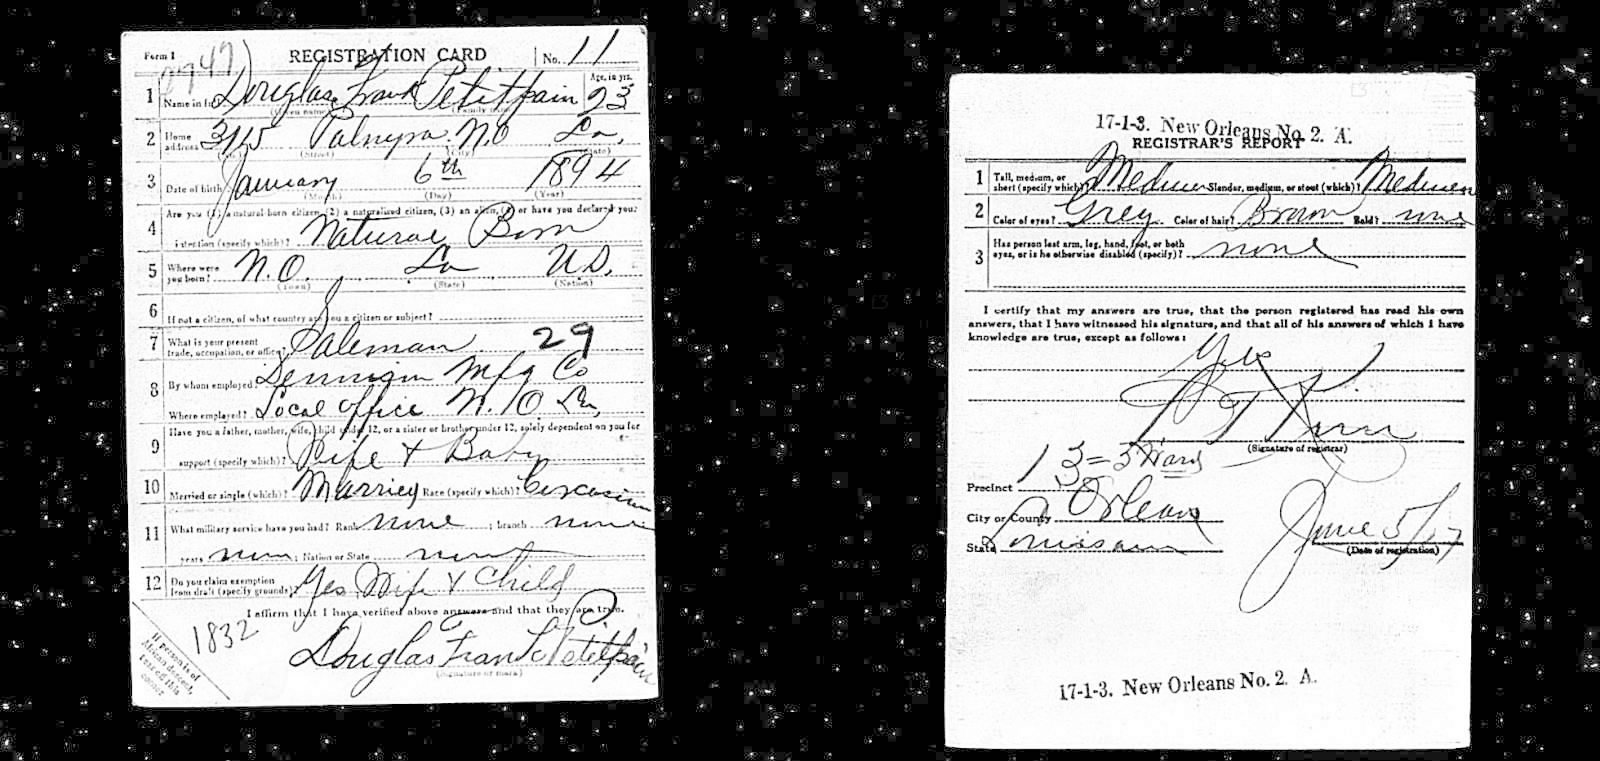 Form 1 REGISTRATION CARD No. 11
1 Name in full Douglas Frank Petitpain Age, in yrs. 23
(Given name) (Family name)
2 Home address 3115 Palmyra N.O La.
(No.) (Street) (City) (State)
3 Date of birth January 6th 1894
(Month) (Day) (Year)
4 Are you (1) a natural-born citizen, (2) a naturalized citizen, (3) an alien, (4) or have you declared your
intention (specify which)? Natural Born
5 Where were you born? N.O. La U.S.
(Town) (State) (Nation)
6 If not a citizen, of what country are you a citizen or subject?
7 What is your present trade, occupation, or office? Saleman 29
8 By whom employed? Mfg Co
Where employed? Local office N.O La,
9 Have you a father, mother, wife, child under 12, or a sister or brother under 12, solely dependent on you for
support (specify which)? Wife + Baby
10 Married or single (which)? Married Race (specify which)?
11 What military service have you had? Rank none ; branch none
years none ; Nation or State none
12 Do you claim exemption from draft (specify grounds)? Yes Wife & Child
I affirm that I have verified above answers and that they are true.
1832
Douglas Frank Petitpain
(Signature or mark)
If person is of
African descent,
tear off this
corner
17-1-3. New Orleans No. 2. A.
REGISTRAR'S REPORT
1 Tall, medium, or short (specify which)? Medium Slender, medium, or stout (which)? Medium
2 Color of eyes? Grey Color of hair? Brown Bald? none
3 Has person lost arm, leg, hand, foot, or both
eyes, or is he otherwise disabled (specify)? none
I certify that my answers are true, that the person registered has read his own
answers, that I have witnessed his signature, and that all of his answers of which I have
knowledge are true, except as follows:
Yes
(Signature of registrar)
Precinct 13=3 Ward
City or County Orleans
State Louisiana
June 5/17
(Date of registration)
17-1-3. New Orleans No. 2. A.